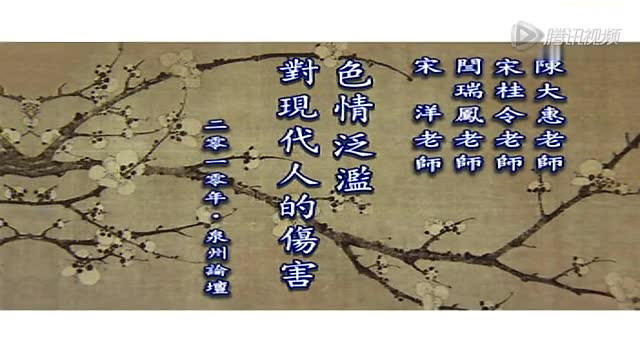 腾讯视频
陳大惠老師
宋桂令老師
閆瑞鳳老師
宋洋老師
色情泛濫
對現代人的傷害
二零一零年·泉州論壇